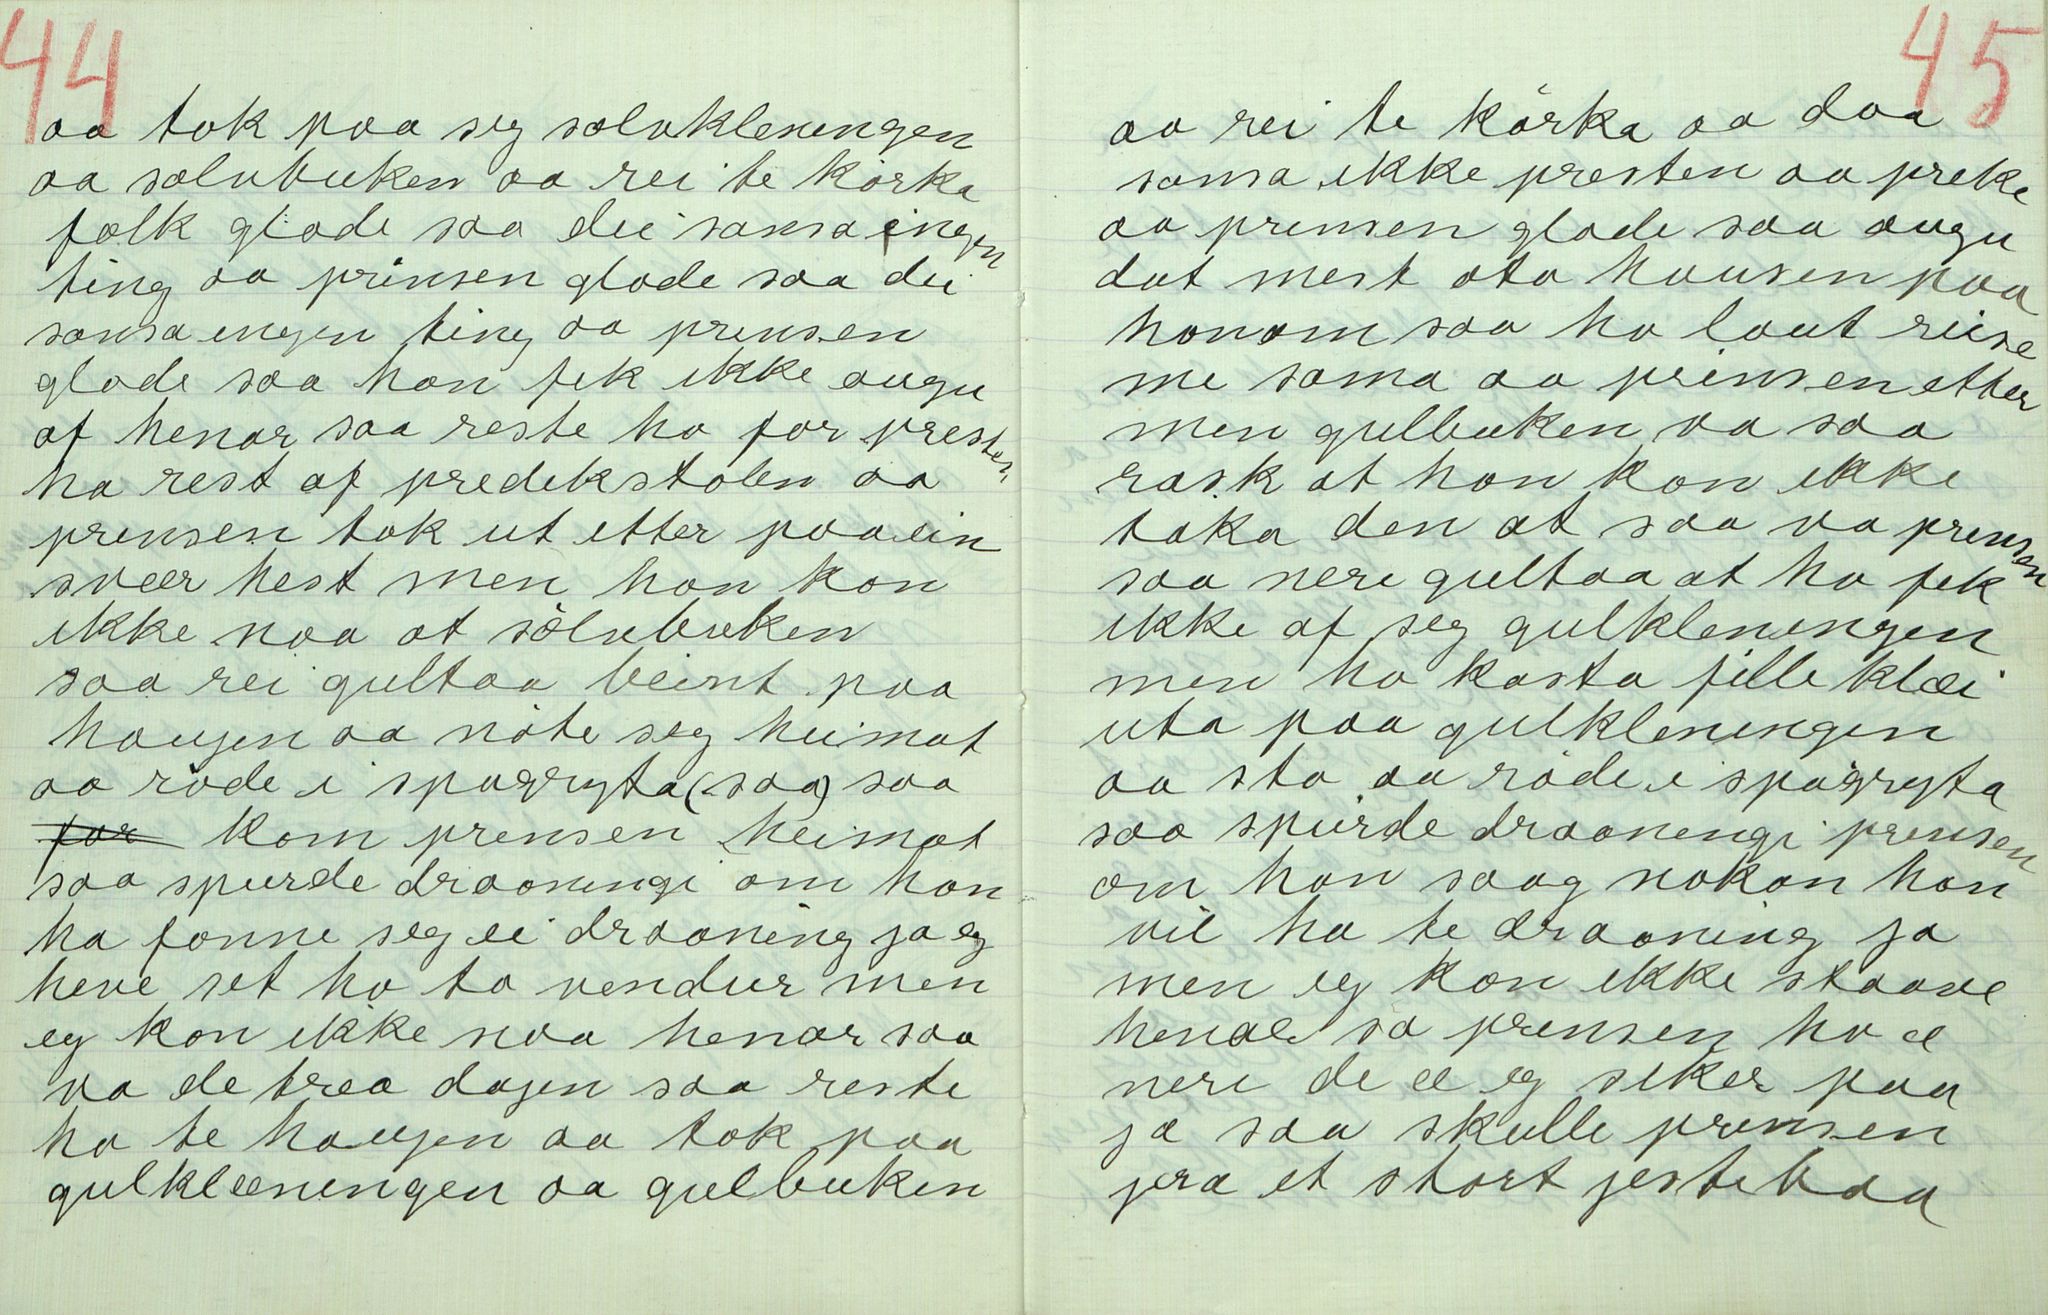 44
aa tok paa seg sølvkleningen
aa sølvbuken aa rei te kørka
fælk glode saa dei sansa ingen
ting aa prinsen glode saa dei
sansa ingen ting aa prinsen
glode saa han fek ikke augu
af henar saa reste ho før presten
ha rest af predikstolen aa
prinsen tok ut etter paa ein
svær hest men han kon
ikke naa at sølvbuken
saa rei gultaa beint paa
haugen aa nøte seg heimat
aa røde i spaagryta (saa) saa
for kom prinsen heimat
saa spurde draaningi om han
ha fonne seg ei draaning ja eg
heve set ho to vendur men
eg kon ikke naa henar saa
va de trea dagen saa reste
ho te haugen aa tok paa
gulkleeningen aa gulbuken
45
aa rei te kørka aa daa
sansa ikke presten aa preke
aa prinsen glode saa augu
dat mest ota hausen paa
honom saa ho laut reise
me sama aa prinsen etter
men gulbuken va saa
rask at han kon ikke
taka den at saa va prinsen
saa nere gultaa at ho fek
ikke af seg gulkleningen
men ho kasta fille klæi
uta paa gulkleningen
aa sto aa røde i spaagryta
saa spurde draaningi prinsen
om han saag nokon han
vil ha te draaning ja
men eg kon ikke staave
henae sa prinsen ho æ
nere de æ eg seker paa
ja saa skulle prinsen
jera et stort jestebaa